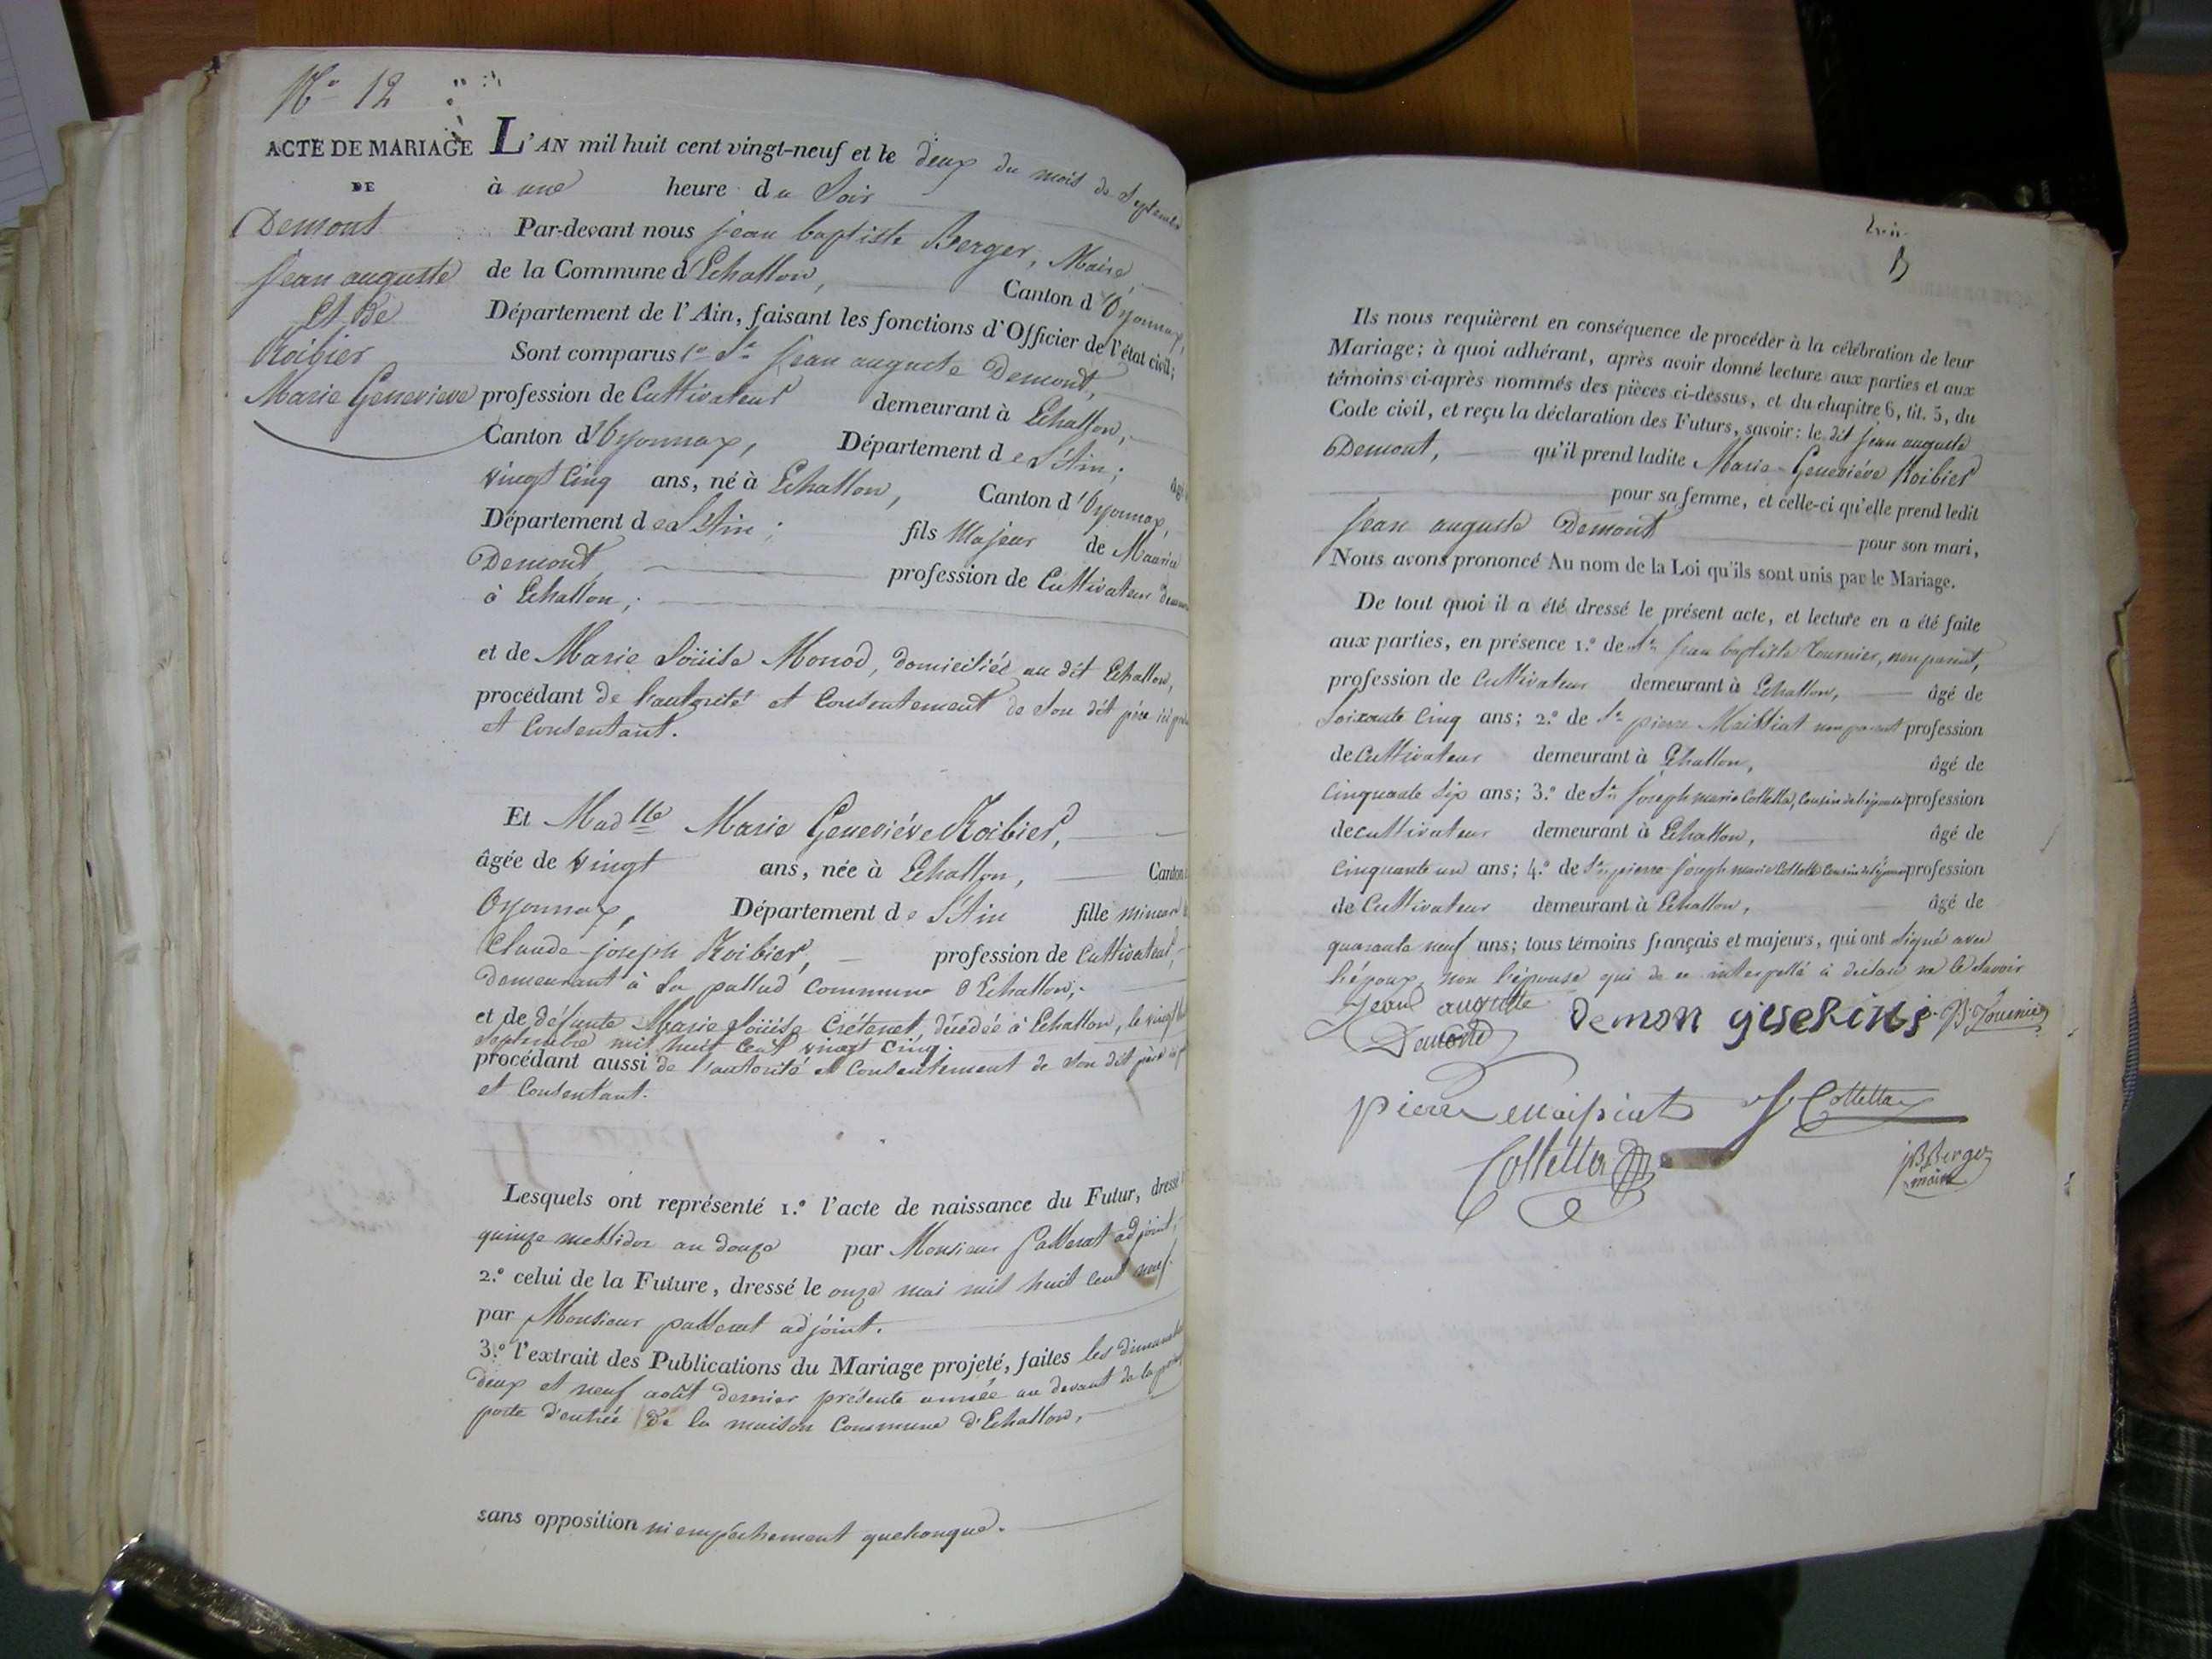 N° 12
ACTE DE MARIAGE
DE
Demont
Jean auguste
Et de
Roibier
Marie Genevieve
L'AN mil huit cent vingt-neuf et le deux du mois de Septembre
à une heure du Soir
Par-devant nous jean baptiste Berger, Maire
de la Commune d'Echallon, Canton d'Oyonnax,
Département de l'Ain, faisant les fonctions d'Officier de l'état civil;
Sont comparus 1° Sr Jean auguste Demont,
profession de Cultivateur demeurant à Echallon,
Canton d'Oyonnax, Département de l'Ain; âgé
vingt cinq ans, né à Echallon, Canton d'Oyonnax,
Département de l'Ain; fils Majeur de Maurice
Demont, profession de Cultivateur
à Echallon;
et de Marie Loüise Monod, domiciliée au dit Echallon,
procédant de l'autorité et Consentement de son dit père
et Consentant.
Et Madlle Marie Geneviéve Roibier,
âgée de vingt ans, née à Echallon, Canton
Oyonnax, Département de l'Ain fille mineure
Claude-joseph Roibier, profession de Cultivateur,
demeurant à La pallud Commune d'Echallon;
et de défunte Marie Loüise Crétenet, décédée à Echallon, le vingt
Septembre mil huit cent vingt cinq.
procédant aussi de l'autorité et Consentement de son dit père
et Consentant.
Lesquels ont représenté 1.° l'acte de naissance du Futur, dressé
quinze messidor an douze par Monsieur Pallerat adjoint;
2.° celui de la Future, dressé le onze mai mil huit cent neuf.
par Monsieur pallerat adjoint.
3.° l'extrait des Publications du Mariage projeté, faites les dimanches
deux et neuf août dernier présente année au devant de la
porte d'entrée de la maison Commune d'Echallon,
sans opposition ni empêchement quelconque.
Ils nous requièrent en conséquence de procéder à la célébration de leur
Mariage; à quoi adhérant, après avoir donné lecture aux parties et aux
témoins ci-après nommés des pièces ci-dessus, et du chapitre 6, tit. 5, du
Code civil, et reçu la déclaration des Futurs, savoir: le dit Jean auguste
Demont, qu'il prend ladite Marie-Geneviéve Roibier
pour sa femme, et celle-ci qu'elle prend ledit
Jean auguste Demont pour son mari,
Nous avons prononcé Au nom de la Loi qu'ils sont unis par le Mariage.
De tout quoi il a été dressé le présent acte, et lecture en a été faite
aux parties, en présence 1.° de Sr Jean baptiste Tournier, non parent,
profession de Cultivateur demeurant à Echallon, âgé de
Soixante Cinq ans; 2.° de Sr pierre Maissiat non parent profession
de Cultivateur demeurant à Echallon, âgé de
Cinquante Six ans; 3.° de Sr Joseph marie Colletta, Cousin de l'épouse profession
de cultivateur demeurant à Echallon, âgé de
Cinquante un ans; 4.° de Sr pierre-Joseph marie Colletta Cousin de l'épouse profession
de Cultivateur demeurant à Echallon, âgé de
quarante neuf ans; tous témoins français et majeurs, qui ont signé avec
l'époux, non l'épouse qui de ce interpellé a déclaré ne le Savoir
Jean auguste
Demont
Demon
J. B. Tournier
pierre maissiat
J Colletta
Colletta
JB Berger
maire